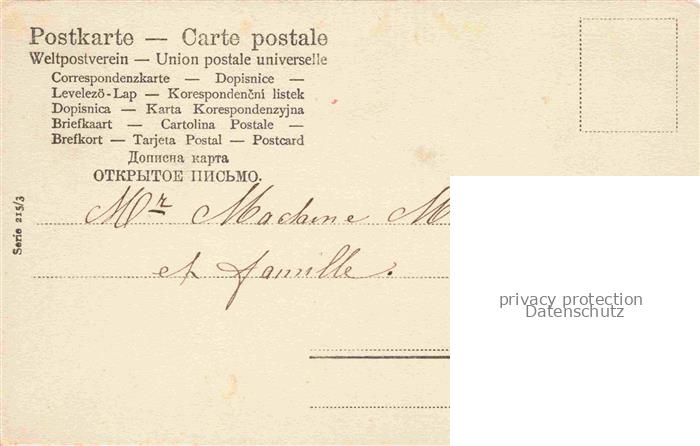 Postkarte — Carte postale
Weltpostverein — Union postale universelle
Correspondenzkarte — Dopisnice —
Levelező-Lap — Korespondenční listek
Dopisnica — Karta Korespondenzyjna
Briefkaart — Cartolina Postale —
Brefkort — Tarjeta Postal — Postcard
Дописна карта
ОТКРЫТОЕ ПИСЬМО.
Serie 215/3
Mr Madame M
et famille.
privacy protection
Datenschutz